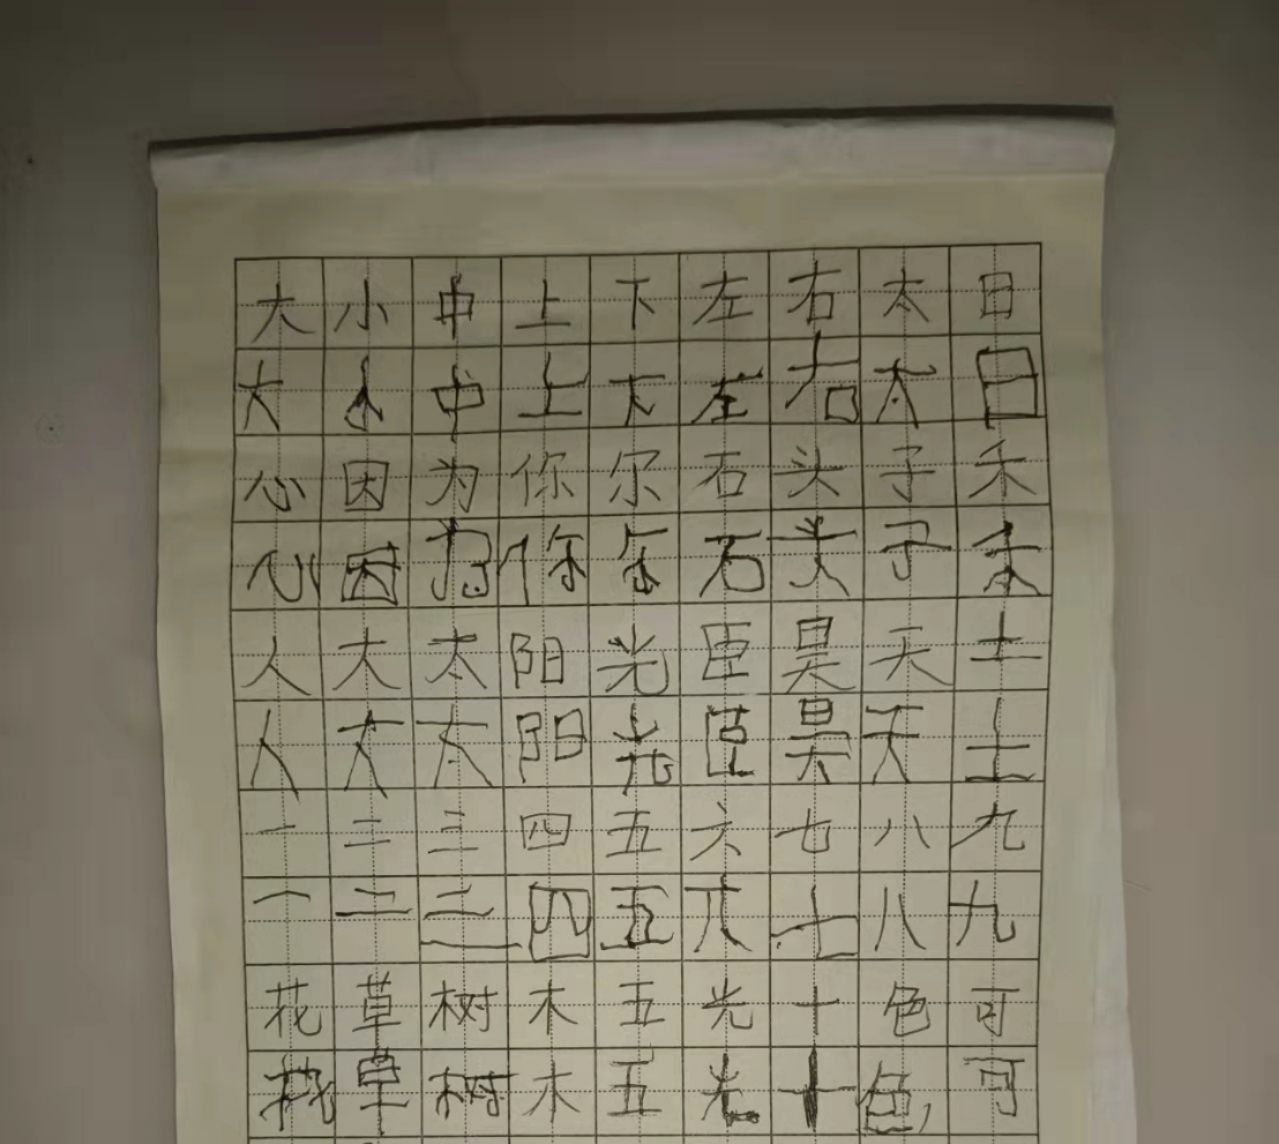 大小中上下左右太日
大小中上下左右太日
心因为你尔石头子禾
心因为你尔石头子禾
人大太阳光臣昊天士
人太太阳光臣昊天土
一二三四五六七八九
一二三四五六七八九
花草树木五光十色可
花草树木五光十色可